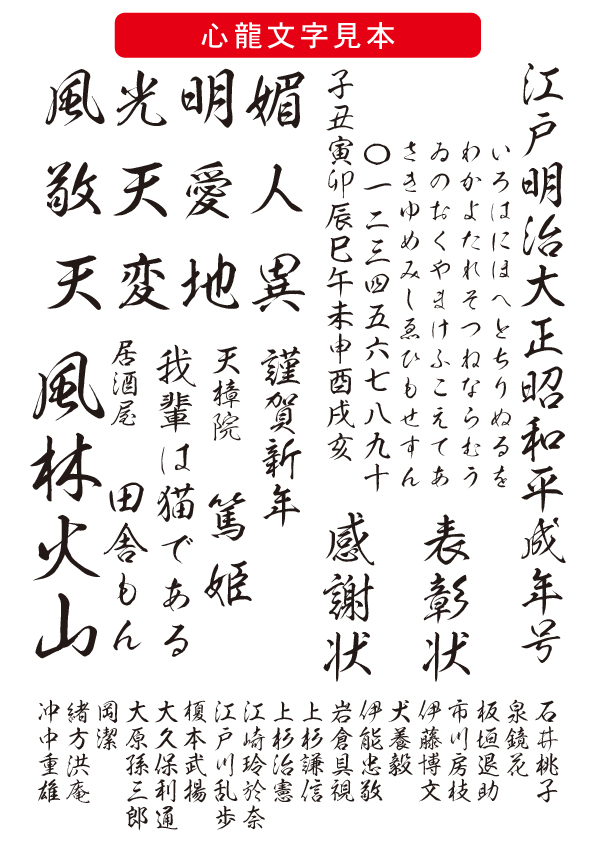 心龍文字見本
江戸明治大正昭和平成年号
いろはにほへとちりぬるを
わかよたれそつねならむう
ゐのおくやまけふこえてあ
さきゆめみしゑひもせすん
〇一二三四五六七八九十
子丑寅卯辰巳午未申酉戌亥
表彰状
感謝状
媚人異
明愛地
光天変
風敬天
謹賀新年
天樟院 篤姫
我輩は猫である
居酒屋 田舎もん
風林火山
石井桃子
泉鏡花
板垣退助
市川房枝
伊藤博文
犬養毅
伊能忠敬
岩倉具視
上杉謙信
上杉治憲
江崎玲於奈
江戸川乱歩
榎本武揚
大久保利通
大原孫三郎
岡潔
緒方洪庵
冲中重雄